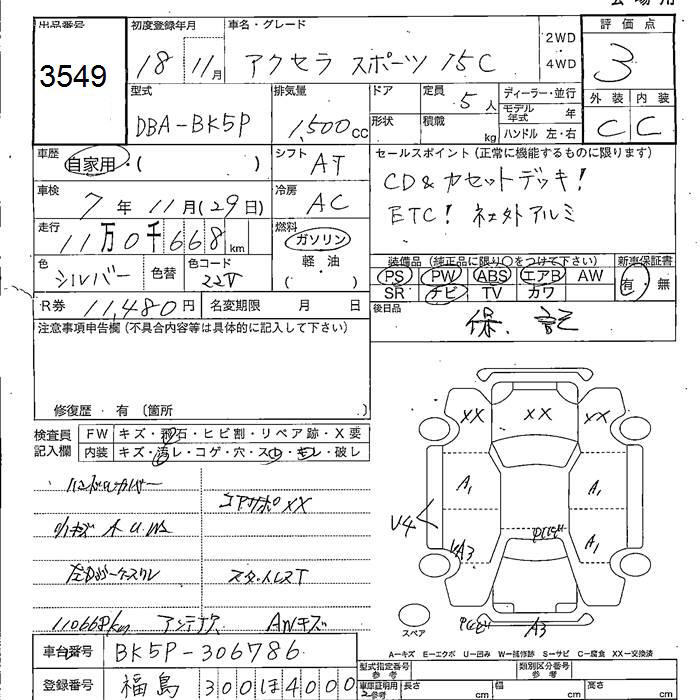 出品番号
3549
初度登録年月
18 11月
車名・グレード
アクセラ スポーツ 15C
2WD
4WD
評価点
3
外装 内装
C C
型式
DBA-BK5P
排気量
1,500cc
ドア
形状
定員
5人
積載
kg
ディーラー・並行
モデル年式 年
ハンドル 左・右
車歴
自家用・( )
シフト
AT
車検
7年11月(29日)
冷房
AC
走行
11万0千668km
燃料
ガソリン
軽・油
( )
色
シルバー
色替
色コード
22V
セールスポイント(正常に機能するものに限ります)
CD&カセットデッキ!
ETC! 社外アルミ
装備品(純正品に限り○をつけて下さい)
PS PW ABS エアB AW
SR ナビ TV カワ
新車保証書
有・無
R券 11,480円
名変期限 月 日
後日品
保、記
注意事項申告欄(不具合内容等は具体的に記入して下さい)
修復歴・有(箇所 )
検査員記入欄
FW キズ・飛石・ヒビ割・リペア跡・X要
内装 キズ・汚レ・コゲ・穴・スレ・キレ・破レ
ハンドルカバー
コアサポXX
110668km アンテナ AWキズ
XX XX XX
A1 A1
V4
A1
A3
スペア
A3
A-キズ E-エクボ U-凹み W-補修跡 S-サビ C-腐食 XX-交換済
車台番号
BK5P-306786
登録番号
福島 300 ほ 4000
型式指定番号
参考
類別区分番号
参考
車庫証明用
参考
長さ cm
幅 cm
高さ cm